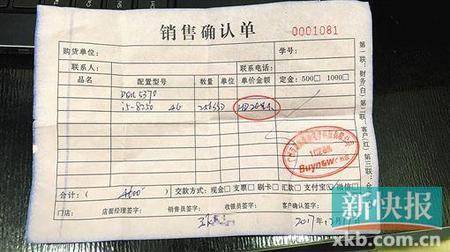 销售确认单
0001081
购货单位:
学号:
联系人:
联系电话:
品名 配置型号 数量 单位 单价金额 定金: 500□ 1000□
DELL 5370
i5-8250 4G 256SSD
Buynow
合计: ( 4800 ) 交款方式: 现金□ 支票□ 刷卡□ 汇款□ 支付宝 微信□
门店: 店面经理签字: 销售员签字: 收银员签字: 客户确认签字:
2017
第一联: 财务(白) 第二联: 客户(红) 第三联:
新快报
xkb.com.cn